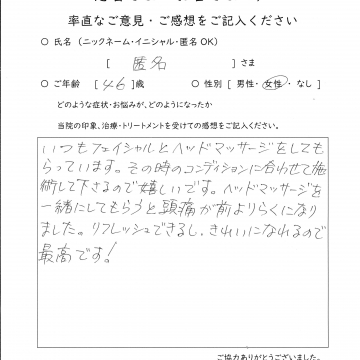 率直なご意見・ご感想をご記入ください
○ 氏名（ニックネーム・イニシャル・匿名OK）
[ 匿名 ] さま
○ ご年齢 [ 46 ] 歳 ○ 性別 [ 男性・女性・なし ]
どのような症状・お悩みが、どのようになったか
当院の印象、治療・トリートメントを受けての感想をご記入ください。
いつもフェイシャルとヘッドマッサージをしても
らっています。その時のコンディションに合わせて施
術して下さるので嬉しいです。ヘッドマッサージを
一緒にしてもらうと頭痛が前よりらくになり
ました。リフレッシュできるし、きれいになれるので
最高です！
ご協力ありがとうございました。